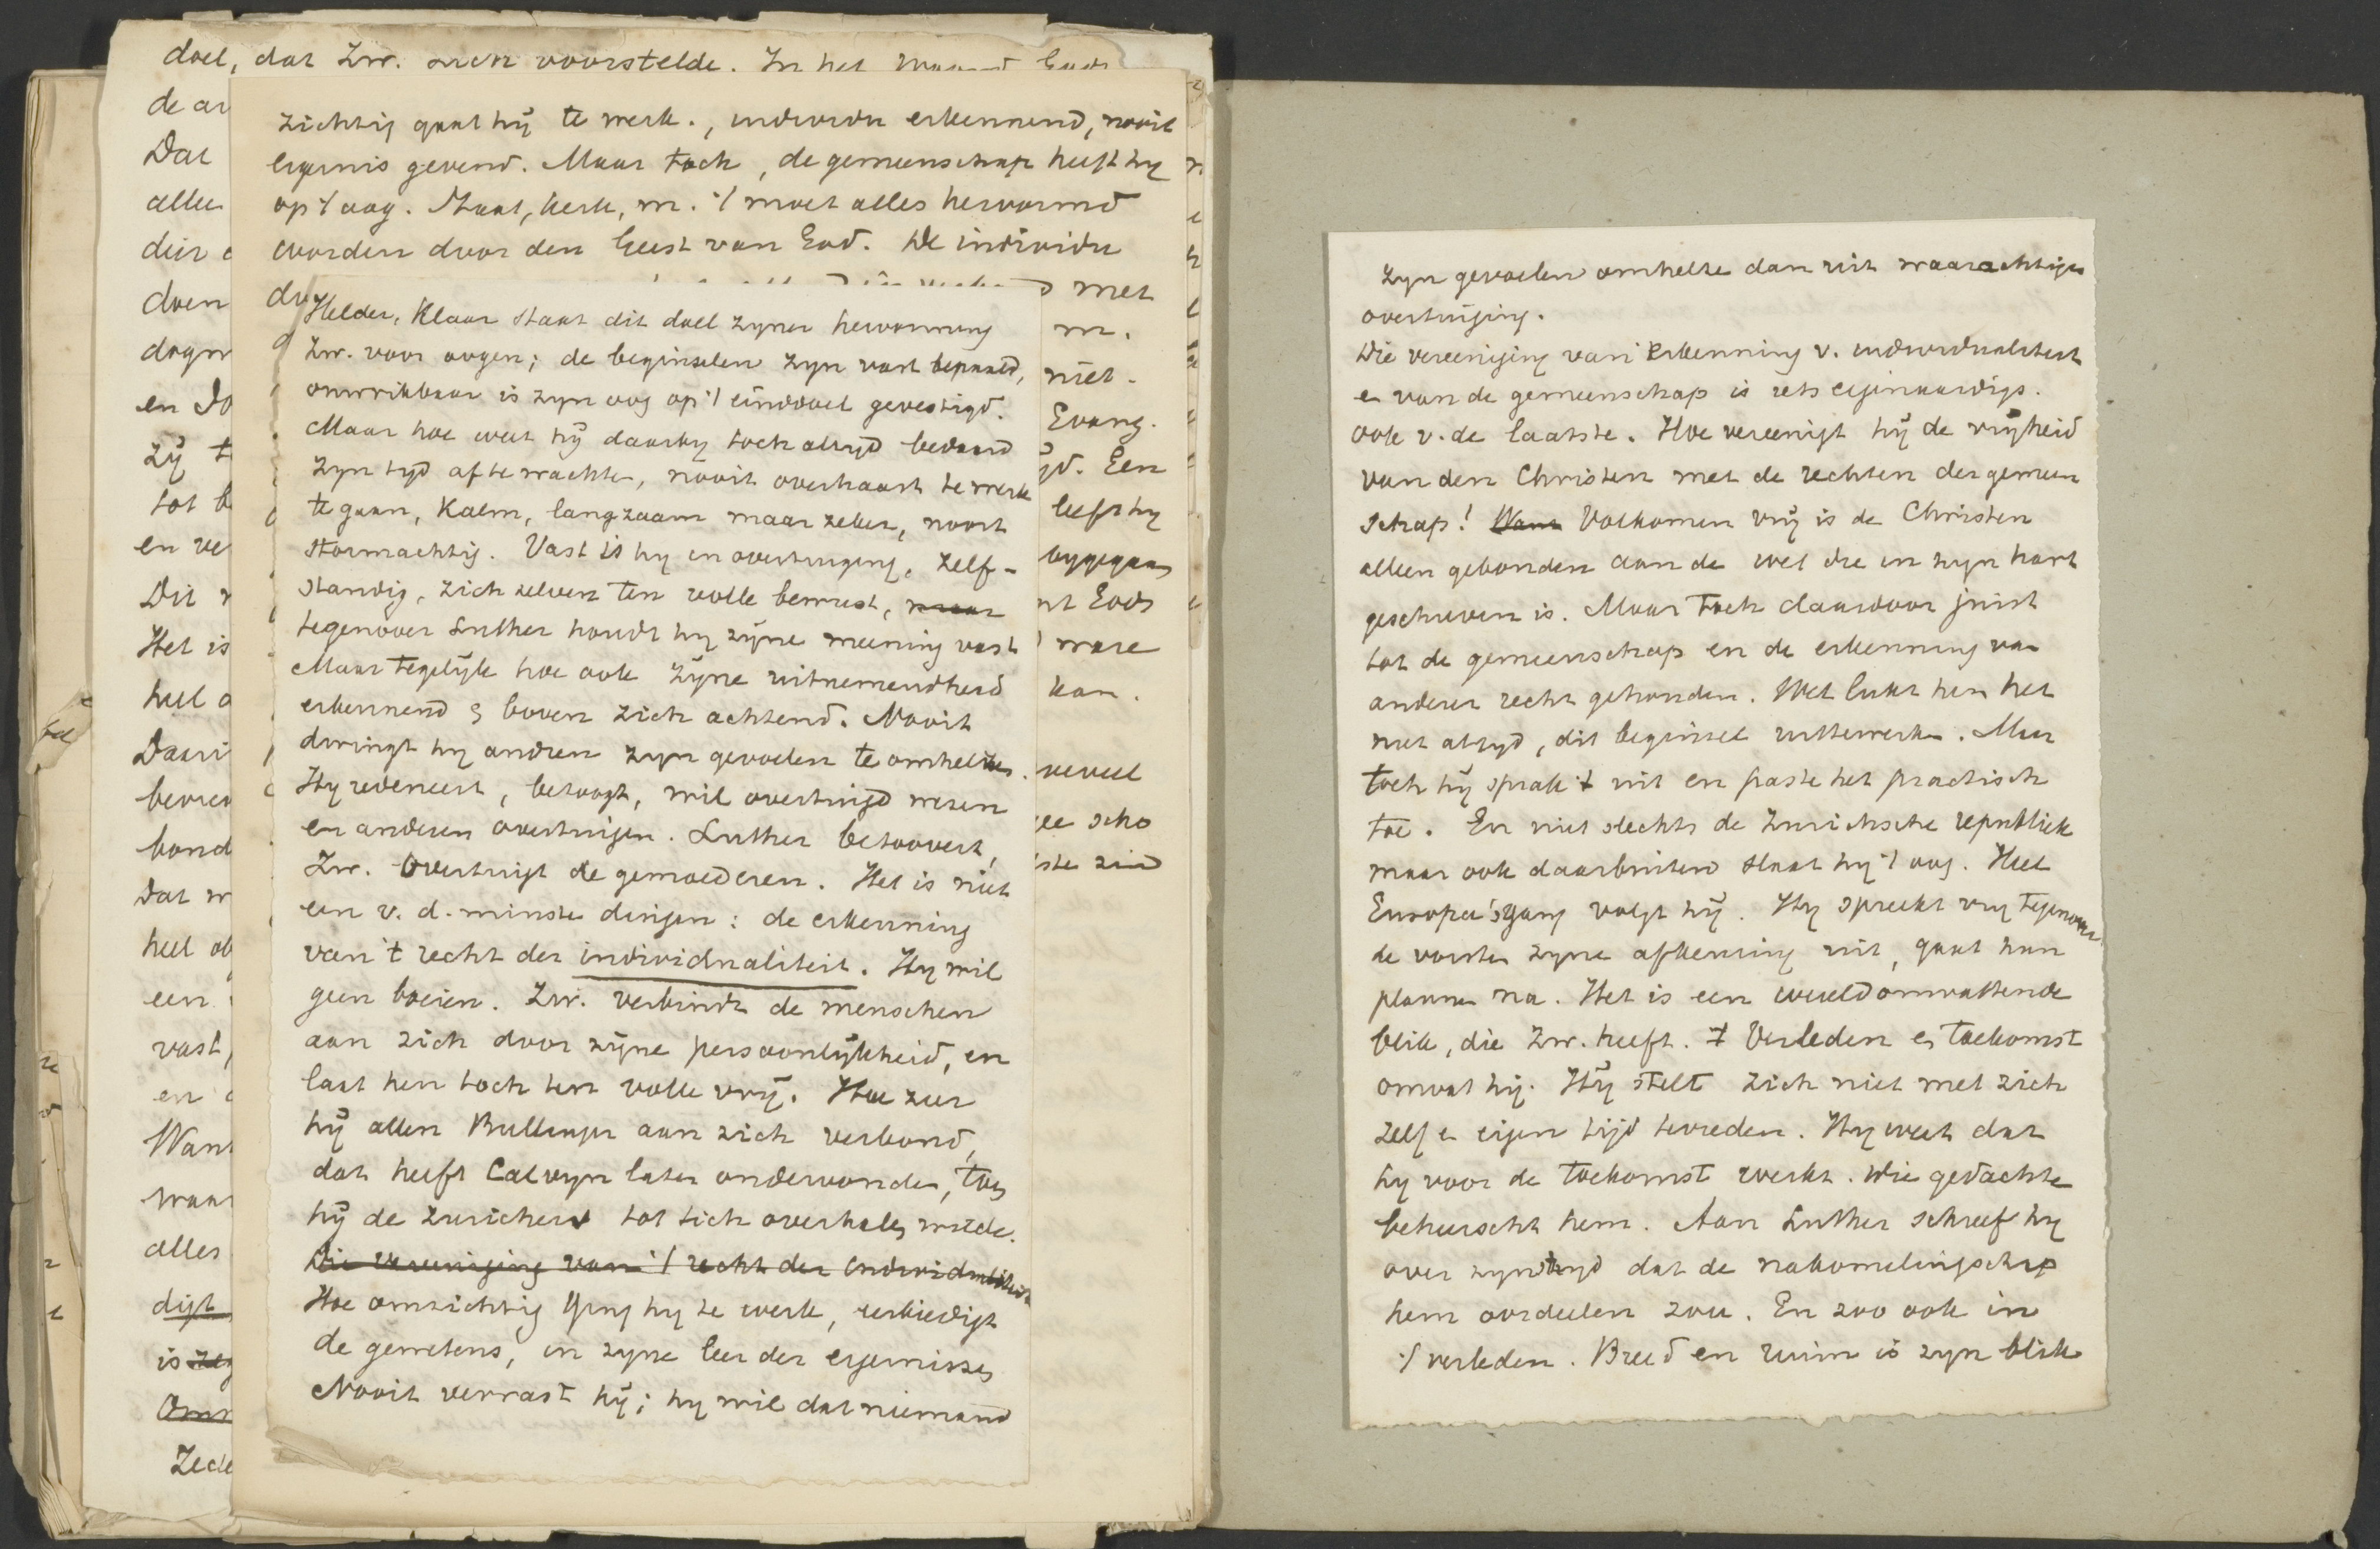 doel, dat Zw. zich voorstelde. In het Woord Gods
de ar
Dat
allee
deir
doen
dogm
en Do
zÿ t
tot b
en ve
Dit
Het is
heel o
Dauri
bevre
bond
Dat w
heel ob
een
vast,
en
Want
waar
alles
digt
is
Omr
Zede
zichtig gaat hÿ te werk., individu erkennend, nooit
ergernis gevend. Maar toch, de gemeenschap heeft hy
op 't oog. Staat, kerk, m. 't moet alles hervormd
worden door den Geest van God. De individu
met
m.
niet.
Evang.
yd. Een
leeft hy
bygegaan
nt Gods
ware
kan.
veel
ee scho
ste zin
Helder, klaar staat dit doel zyner hervorming
Zw. voor oogen; de beginselen zyn vast bepaald,
onwrikbaar is zyn oog op 't einddoel gevestigd.
Maar hoe weet hÿ daarby toch altyd bedaard
zyn tyd af te wachten, nooit overhaast te werk
te gaan, kalm, langzaam maar zeker, nooit
stormachtig. Vast is hy in overtuiging, zelf-
standig, zich zelven ten volle bewust, maar
tegenover Luther houdt hy zÿne meening vast
Maar tegelÿk hoe ook zÿne uitnemendheid
erkennend & boven zich achtend. Nooit
dwingt hy andren zyn gevoelen te omhelzen.
Hy redeneert, betoogt, wil overtuigd wezen
en anderen overtuigen. Luther betoovert,
Zw. overtuigt de gemoederen. Het is niet
een v. d. minste dingen: de erkenning
van 't recht der individualiteit. Hy wil
geen boeien. Zw. verbindt de menschen
aan zich door zÿne persoonlÿkheid, en
laat hen toch ten volle vrÿ. Hoe zeer
hÿ allen Bullinger aan zich verbond,
dat heeft Calvyn later ondervonden, toen
hÿ de Zurichers tot zich overhalen wilde.
Die vereeniging van 't recht der individualiteit
Hoe omzichtig ging hy te werk, eerbiedigt
de gewetens, in zyne leer der ergernissen
Nooit verrast hÿ; hy wil dat niemand
zyn gevoelen omhelze dan uit waarachtige
overtuiging.
Die vereeniging van erkenning v. individualiteit
en van de gemeenschap is iets eigenaardigs.
ook v. de laatste. Hoe vereenigt hÿ de vrÿheid
van den Christen met de rechten der gemeen
schap! Want Volkomen vrÿ is de Christen
alleen gebonden aan de wet die in zyn hart
geschreven is. Maar toch daardoor juist
tot de gemeenschap en de erkenning van
anderer recht gehouden. Wel lukt hem het
niet altyd, dit beginsel uittewerken. Maar
toch hÿ sprak 't uit en paste het practisch
toe. En niet slechts de Zurichsche republiek
maar ook daarbuiten slaat hy 't oog. Heel
Europa's gang volgt hÿ. Hy spreekt vry tegenover
de vorsten zyne afkeuring uit, gaat hun
plannen na. Het is een wereldomvattende
blik, die Zw. heeft. 't Verleden en toekomst
omvat hÿ. Hÿ stelt zich niet met zich
zelf en eigen tÿd tevreden. Hy weet dat
hy voor de toekomst werkt. Die gedachte
beheerscht hem. Aan Luther schreef hy
over zyn stryd dat de nakomelingschap
hem oordeelen zou. En zoo ook in
't verleden. Breed en ruim is zyn blik